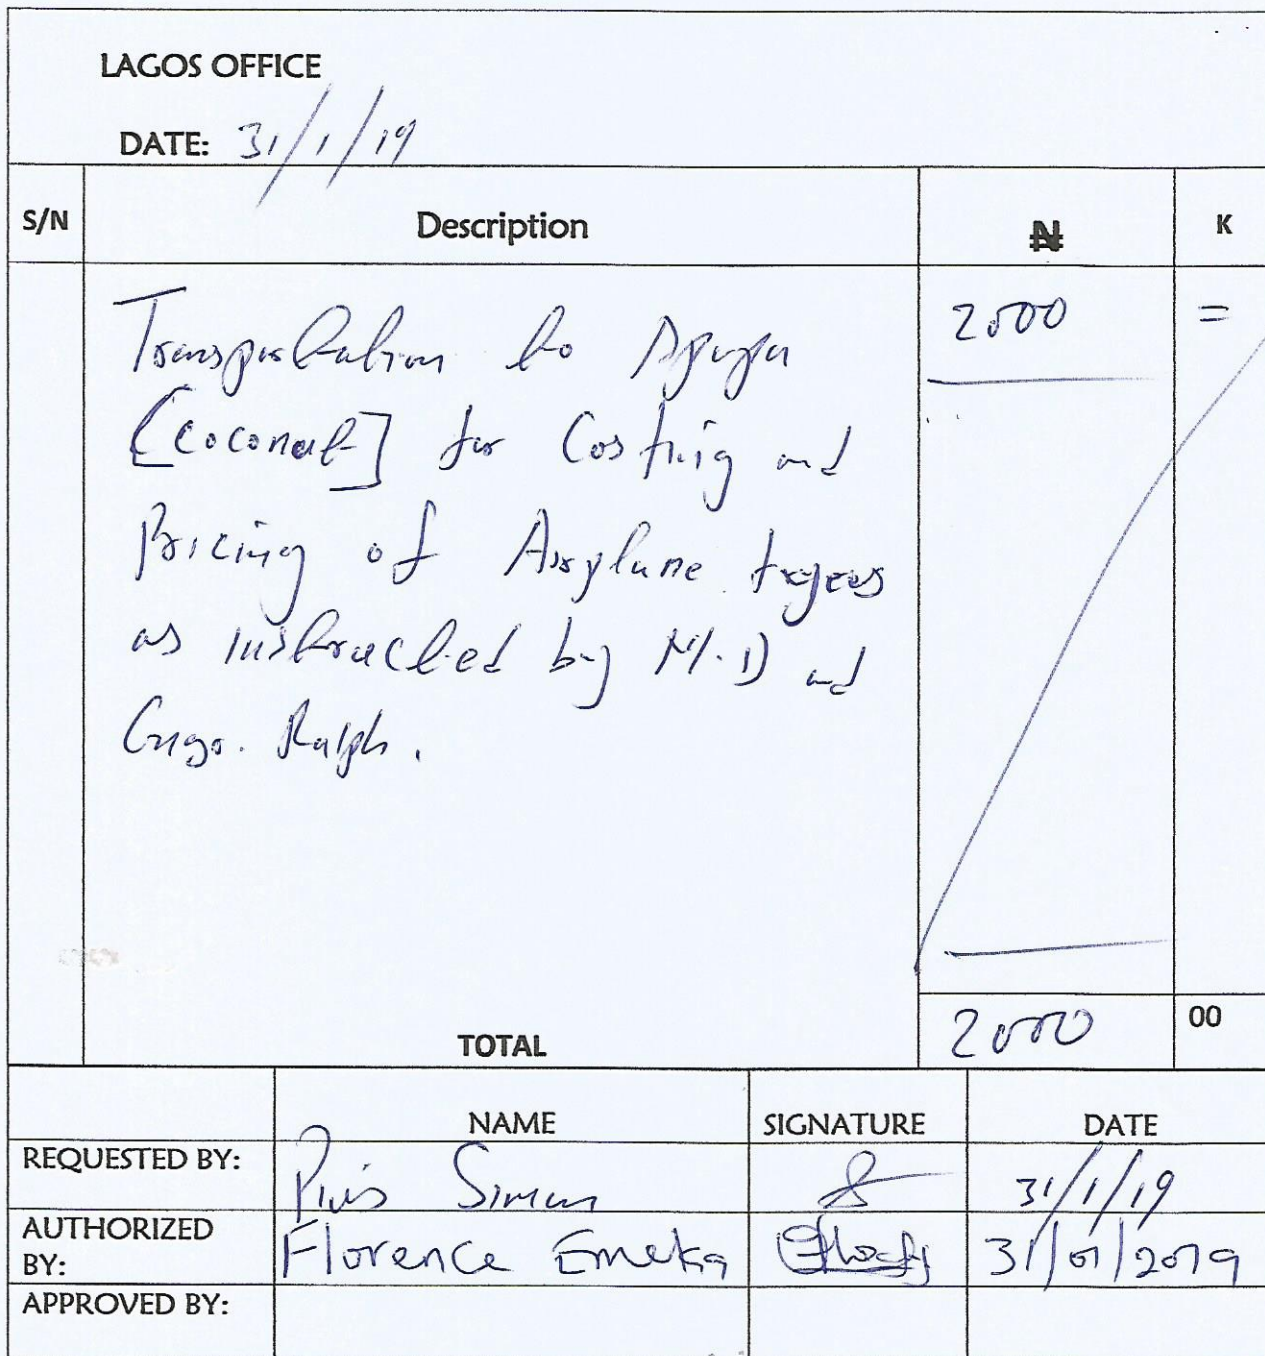 LAGOS OFFICE
DATE: 31/1/19
S/N Description ₦ K
Transportation to Apapa 2000 =
[Coconut] for Costing and
Pricing of Airplane tyres
as instructed by M.D and
Engr. Ralph.
TOTAL 2000 00
NAME SIGNATURE DATE
REQUESTED BY: Pius Simon 31/1/19
AUTHORIZED
BY: Florence Emeka 31/01/2019
APPROVED BY: